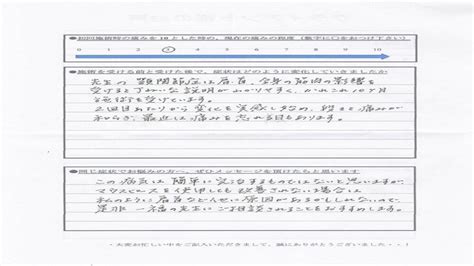 ●初回施術時の痛みを10とした時の、現在の痛みの程度（数字に○をおつけ下さい）
0 1 2 3 4 5 6 7 8 9 10
●施術を受ける前と受けた後で、症状はどのように変化していきましたか
先生の 顎関節症は肩首、全身の筋肉の影響を
受けると丁ねいな説明がわかりやすく、かれこれ10ヶ月
施術を受けています。
2回目あたりから変化を実感し始め、段々と痛みが
和らぎ、最近は痛みを忘れる日もあります。
●同じ症状でお悩みの方へ、ぜひメッセージを頂けたらと思います
この病気は簡単に完治するものではないと思いますが、
マウスピースを使用しても改善されない場合は
私のように肩首などといた原因があるかもしれないので、
是非一福の先生にご相談されることをおすすめします。
・大変お忙しい中をご記入いただきまして、誠にありがとうございました・・！